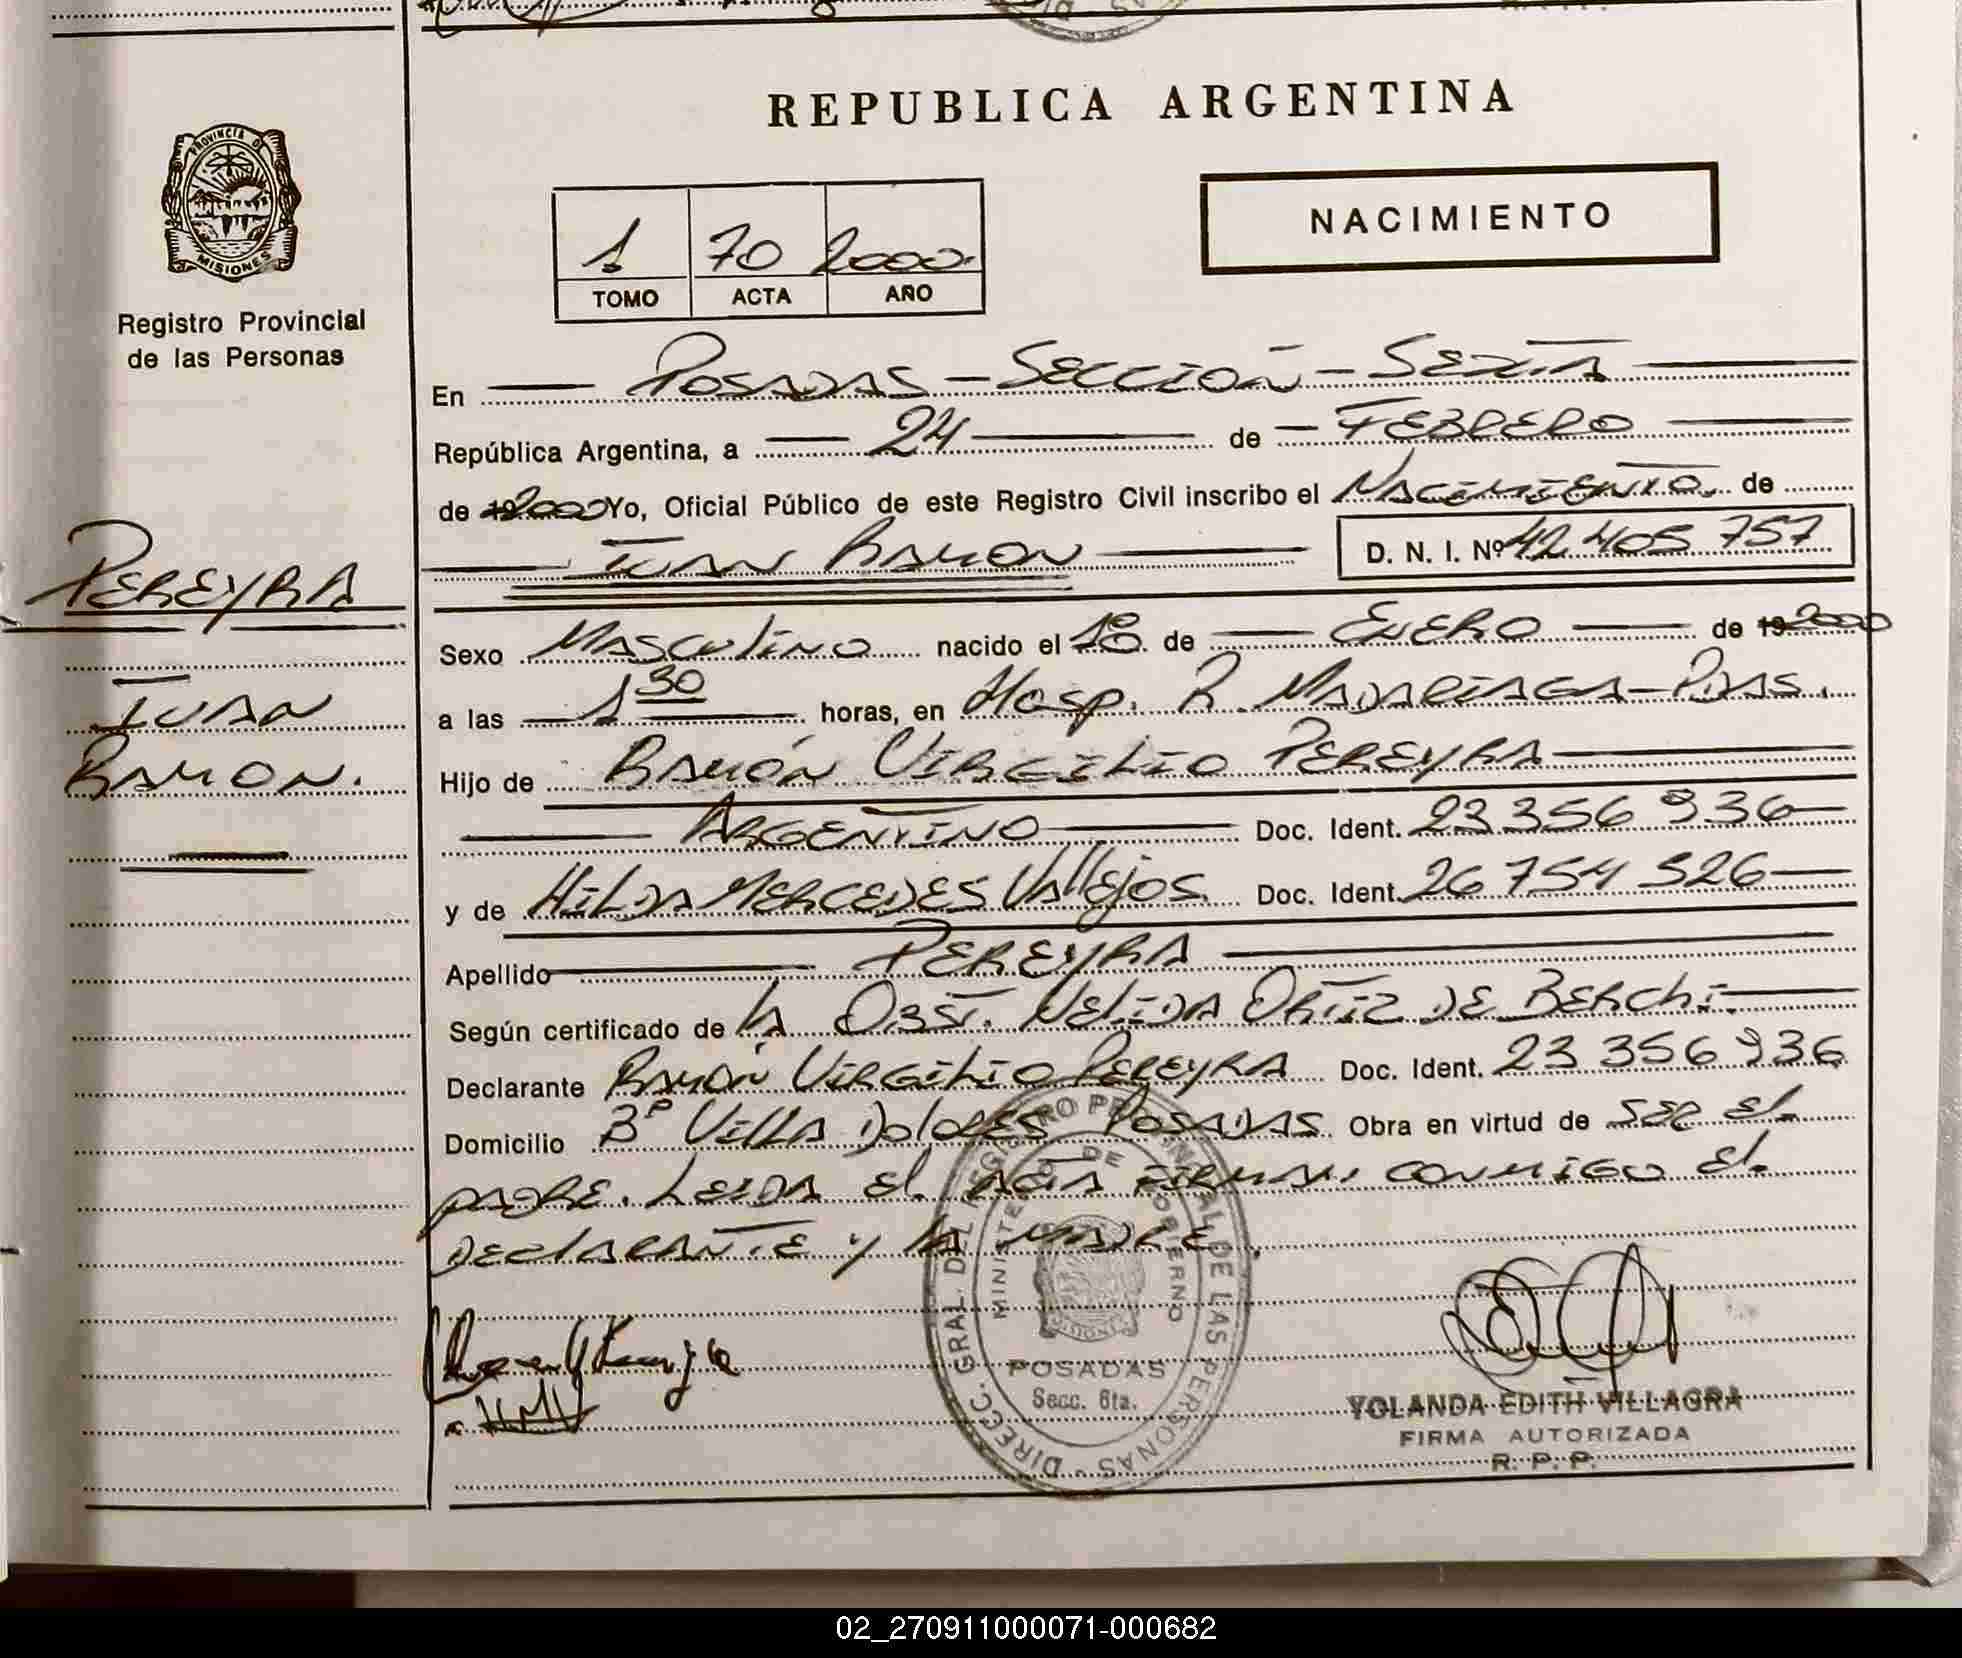 REPUBLICA ARGENTINA
PROVINCIA DE
MISIONES
Registro Provincial
de las Personas
NACIMIENTO
1 70 2000
TOMO ACTA AÑO
En POSADAS - SECCIÓN - SEXTA
República Argentina, a 24 de FEBRERO
de 2000 Yo, Oficial Público de este Registro Civil inscribo el NACIMIENTO de
JUAN RAMON D. N. I. Nº 42 405 757
PEREYRA
JUAN
RAMON.
Sexo MASCULINO nacido el 18 de ENERO de 19 2000
a las 1 30 horas, en Hosp. R. MADARIAGA - PDAS.
Hijo de RAMÓN VIRGILIO PEREYRA
ARGENTINO Doc. Ident. 23 356 936
y de HILDA MERCEDES VALLEJOS Doc. Ident. 26 754 926
Apellido PEREYRA
Según certificado de LA OBST. NELIDA ORTIZ DE BERCHI.
Declarante RAMÓN VIRGILIO PEREYRA Doc. Ident. 23 356 936
Domicilio Bº VILLA DOLORES POSADAS. Obra en virtud de SER EL
PADRE. LEIDA EL ACTA FIRMAN CONMIGO EL
DECLARANTE Y LA MADRE.
DIRECC. GRAL. DEL REGISTRO PROVINCIAL DE LAS PERSONAS
MINISTERIO DE GOBIERNO
POSADAS
Secc. 6ta.
YOLANDA EDITH VILLAGRA
FIRMA AUTORIZADA
R. P. P.
02_270911000071-000682